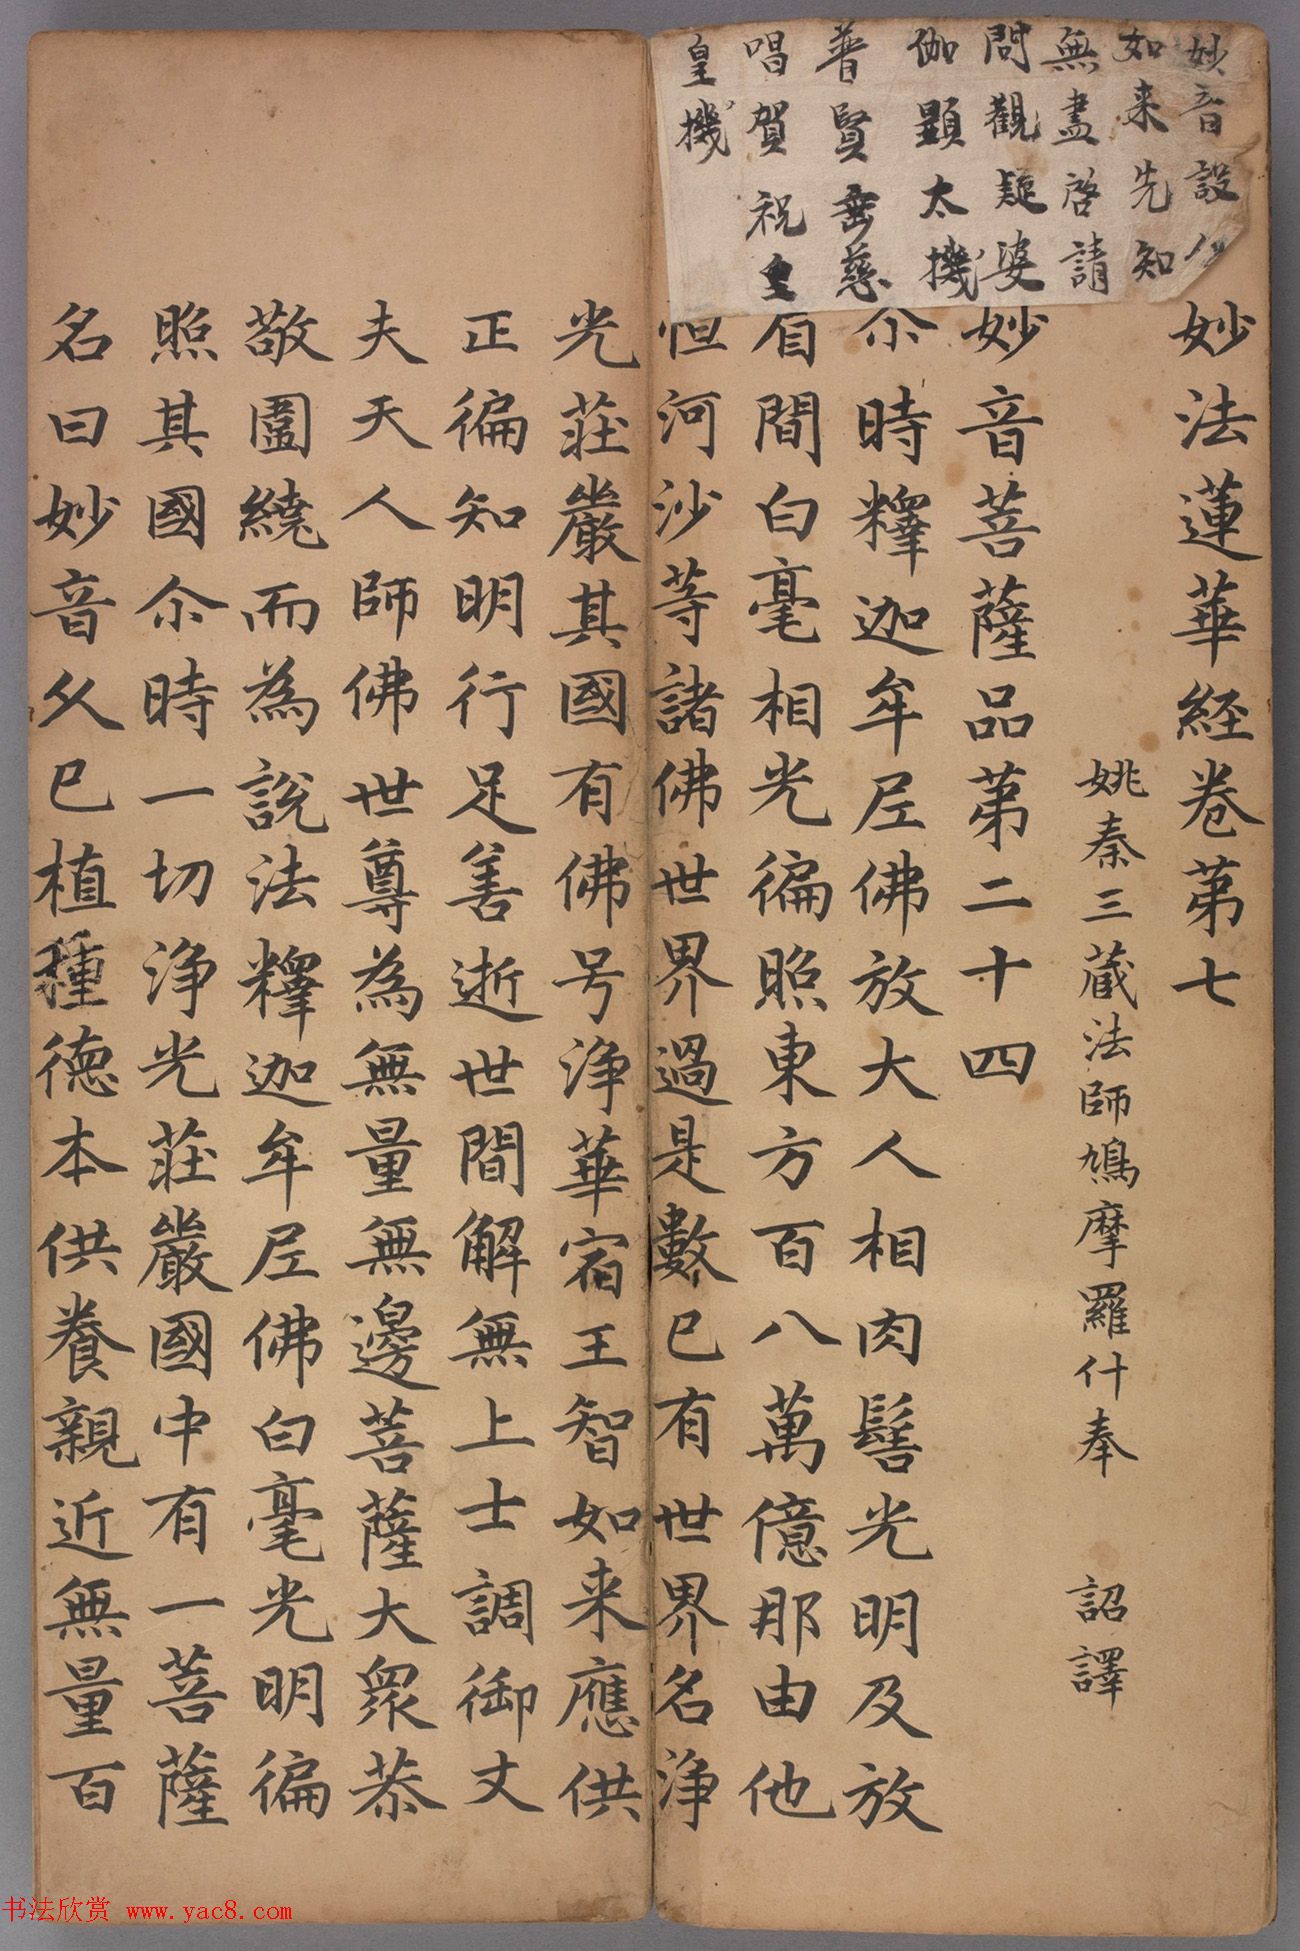 妙音設
如来先知
無盡啓請
問觀疑婆
伽顯太機
普賢垂慈
唱賀祝皇
皇機
妙法蓮華経卷第七
姚秦三蔵法師鳩摩羅什奉 詔譯
妙音菩薩品第二十四
尒時釋迦牟尼佛放大人相肉髻光明及放
眉間白毫相光徧照東方百八萬億那由他
恒河沙等諸佛世界過是數已有世界名淨
光莊嚴其國有佛号淨華宿王智如来應供
正徧知明行足善逝世間解無上士調御丈
夫天人師佛世尊為無量無邊菩薩大衆恭
敬圍繞而為說法釋迦牟尼佛白毫光明徧
照其國尒時一切淨光莊嚴國中有一菩薩
名曰妙音久已植種德本供養親近無量百
书法欣赏 www.yac8.com